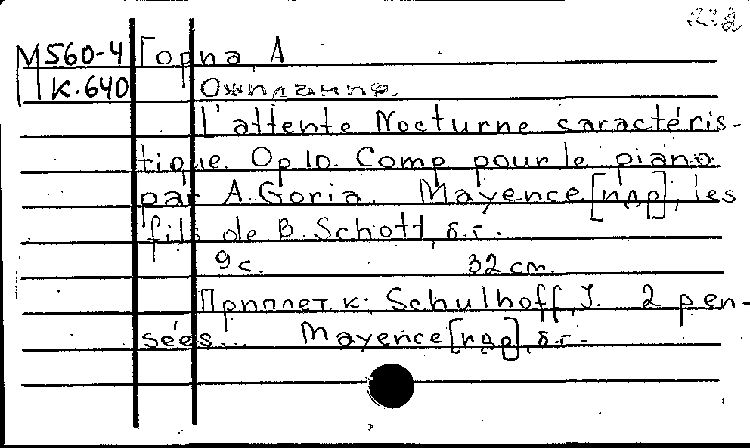 М560-4 Гориа, А
К.640 Ожидание.
L'attente Nocturne caractéris-
tique. Op 10. Comp pour le piano
par A. Goria. Mayence [и др], les
fils de B. Schott, б.г.
9 с. 32 см.
Приплет. к: Schulhoff, J. 2 pen-
sées... Mayence [и др], б.г.